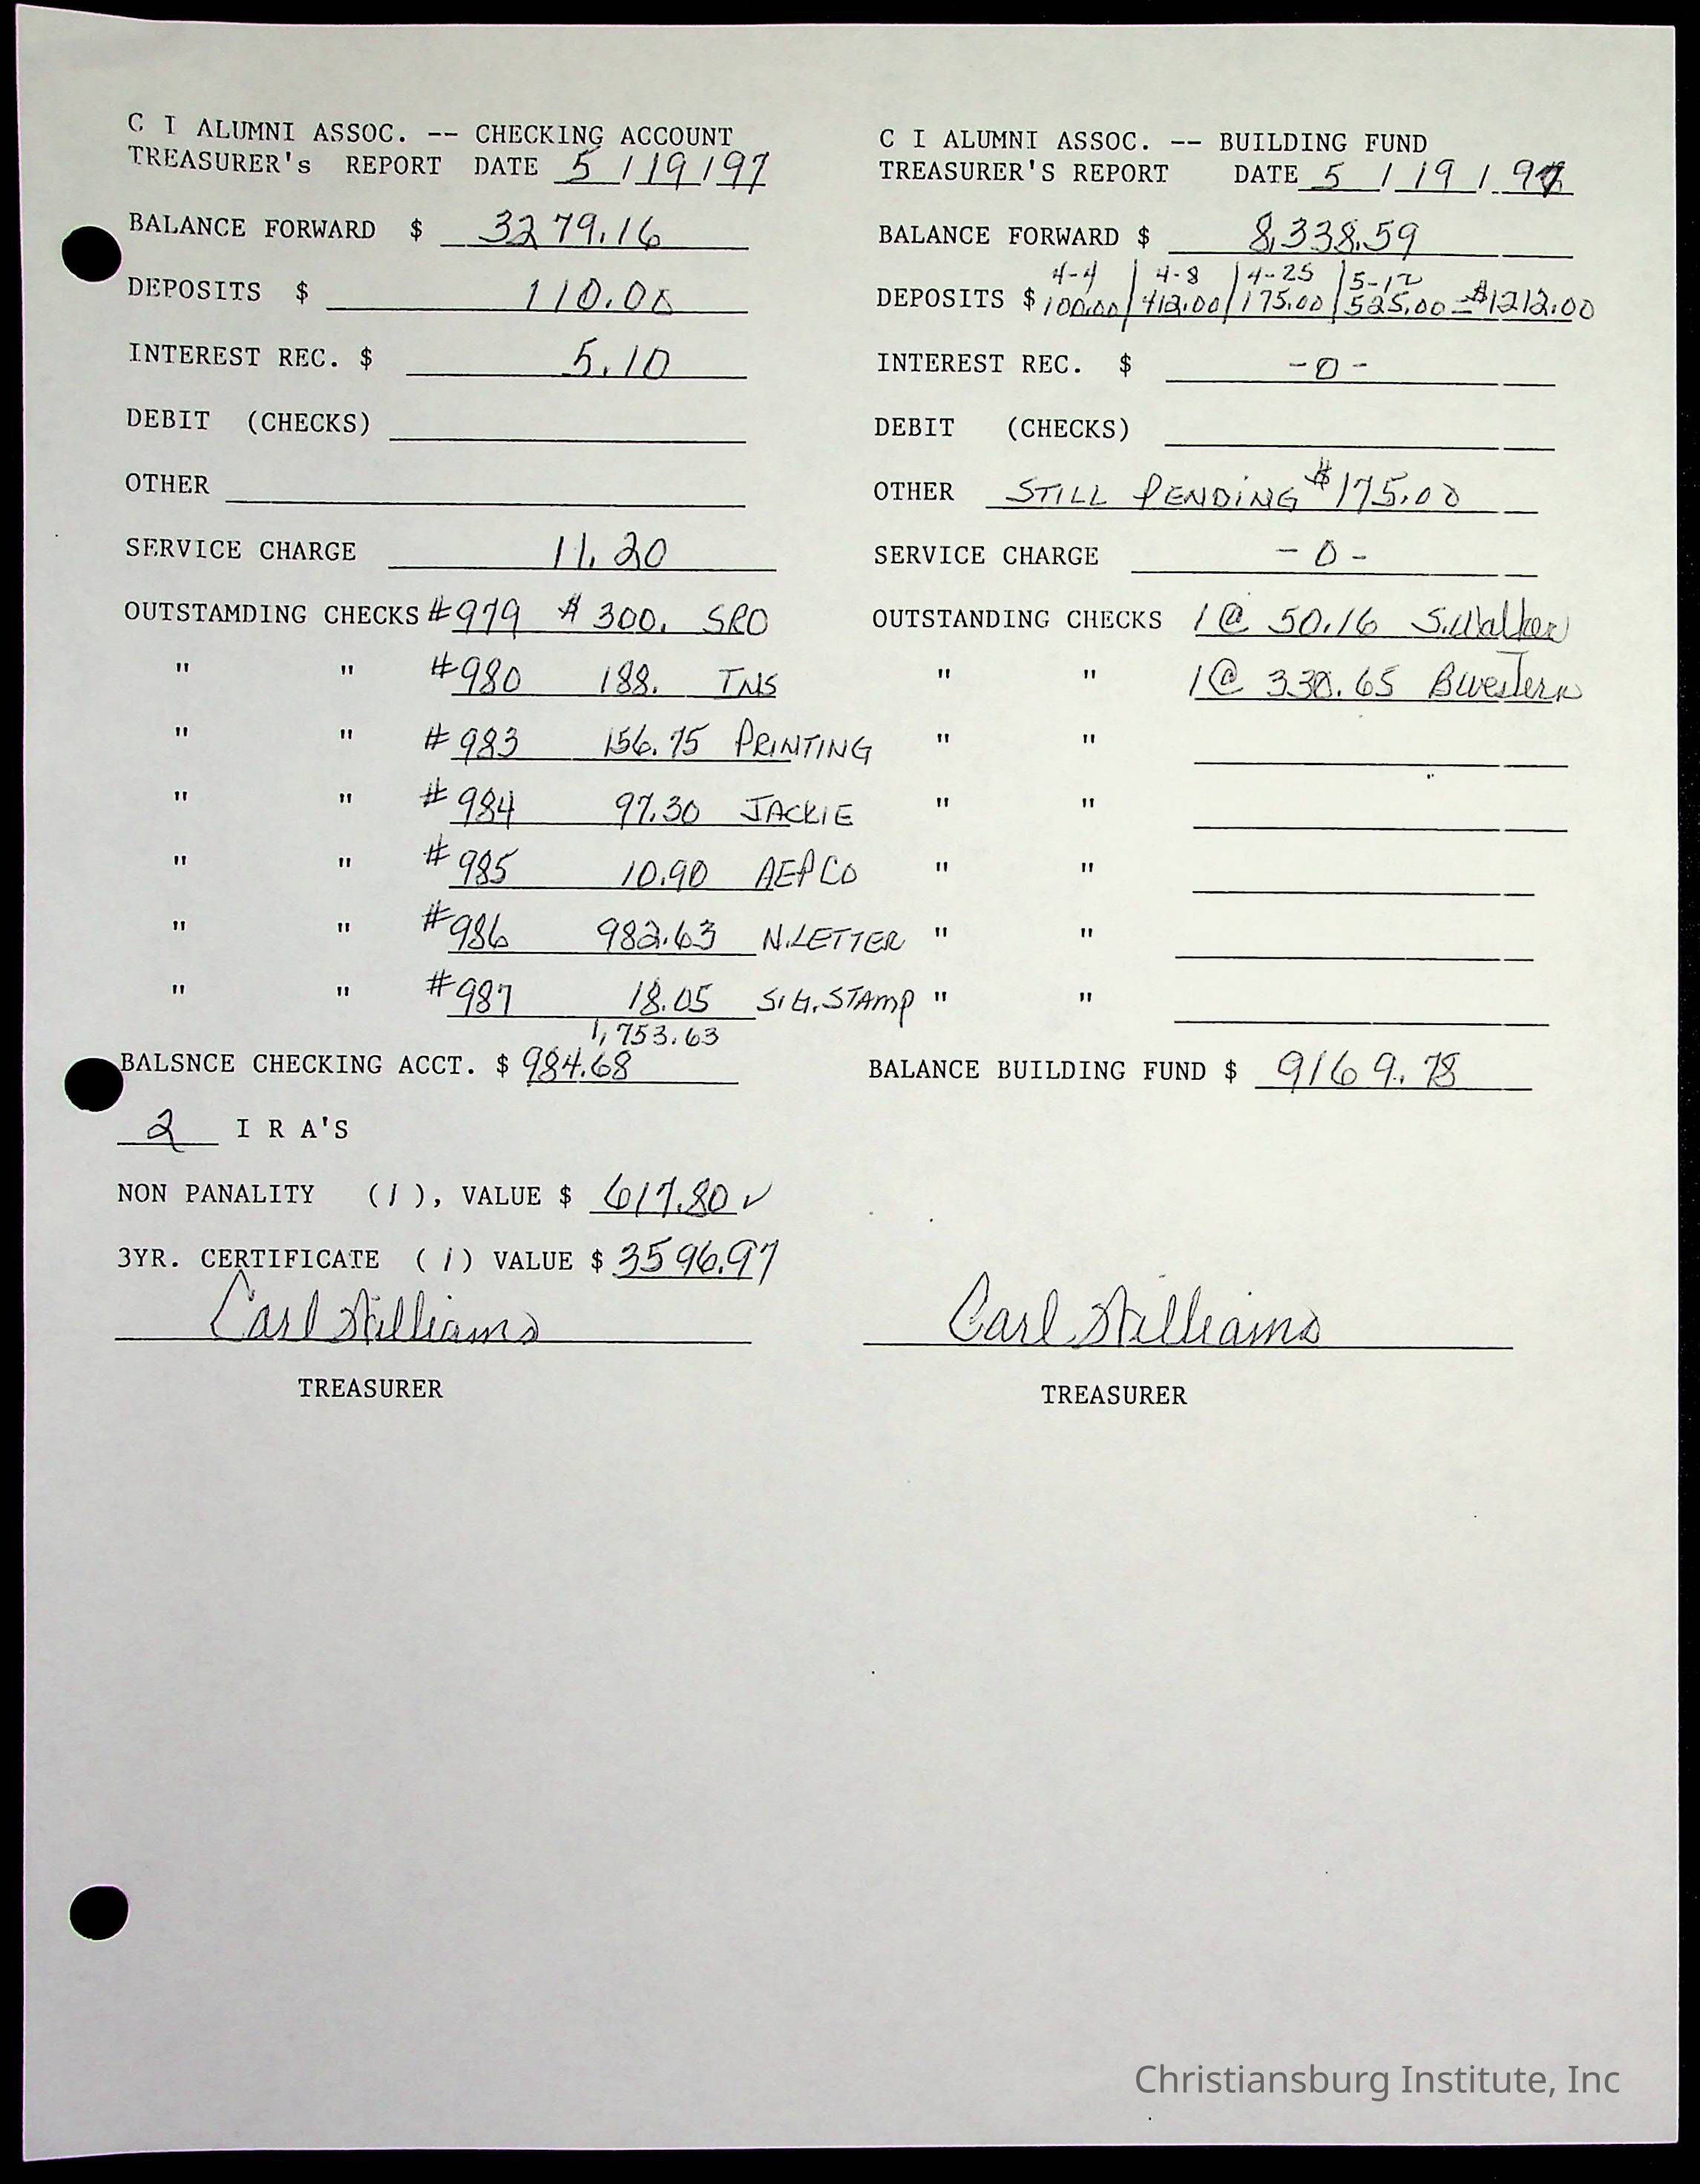 C I ALUMNI ASSOC. -- CHECKING ACCOUNT
TREASURER's REPORT DATE 5 / 19 / 97
BALANCE FORWARD $ 3279.16
DEPOSITS $ 110.00
INTEREST REC. $ 5.10
DEBIT (CHECKS)
OTHER
SERVICE CHARGE 11.20
OUTSTAMDING CHECKS #979 $ 300. SRO
" " #980 188. TNS
" " #983 156.75 PRINTING
" " #984 97.30 JACKIE
" " #985 10.90 AEPCO
" " #986 982.63 N.LETTER
" " #987 18.05 SIG.STAMP
1,753.63
BALSNCE CHECKING ACCT. $ 984.68
2 I R A'S
NON PANALITY (1), VALUE $ 617.80 ✓
3YR. CERTIFICATE (1) VALUE $ 3596.97
Carl Williams
TREASURER
C I ALUMNI ASSOC. -- BUILDING FUND
TREASURER'S REPORT DATE 5 / 19 / 97
BALANCE FORWARD $ 8,338.59
4-4 | 4-8 | 4-25 | 5-12
DEPOSITS $ 100.00 | 412.00 | 175.00 | 525.00 = $1212.00
INTEREST REC. $ -0-
DEBIT (CHECKS)
OTHER STILL PENDING $175.00
SERVICE CHARGE -0-
OUTSTANDING CHECKS 1 @ 50.16 S.Walker
" " 1 @ 330.65 BWestern
" "
" "
" "
" "
" "
BALANCE BUILDING FUND $ 9169.78
Carl Williams
TREASURER
Christiansburg Institute, Inc